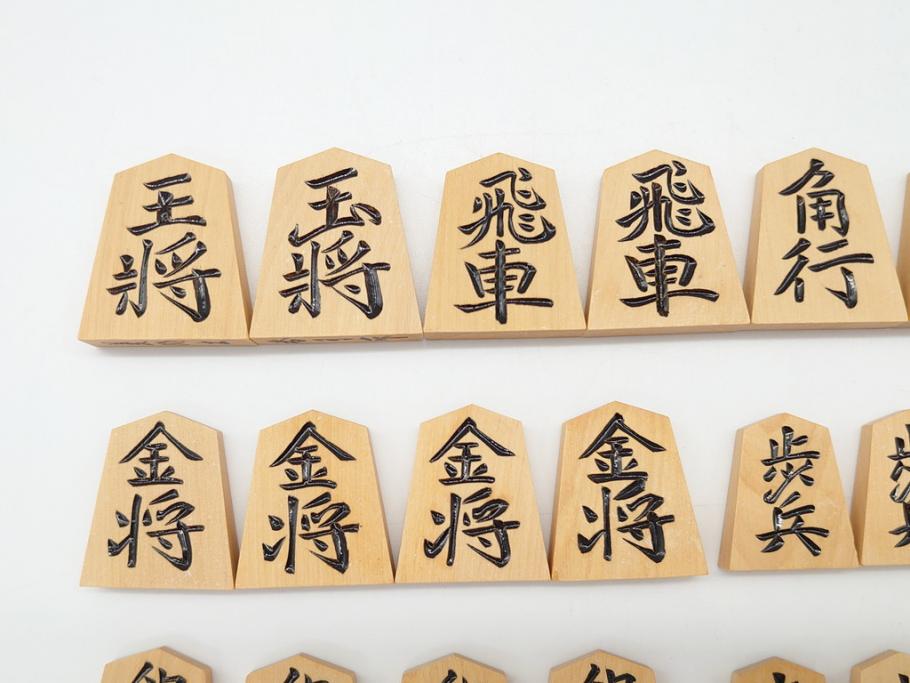 王將
玉將
飛車
飛車
角行
金将
金将
金将
金将
歩兵